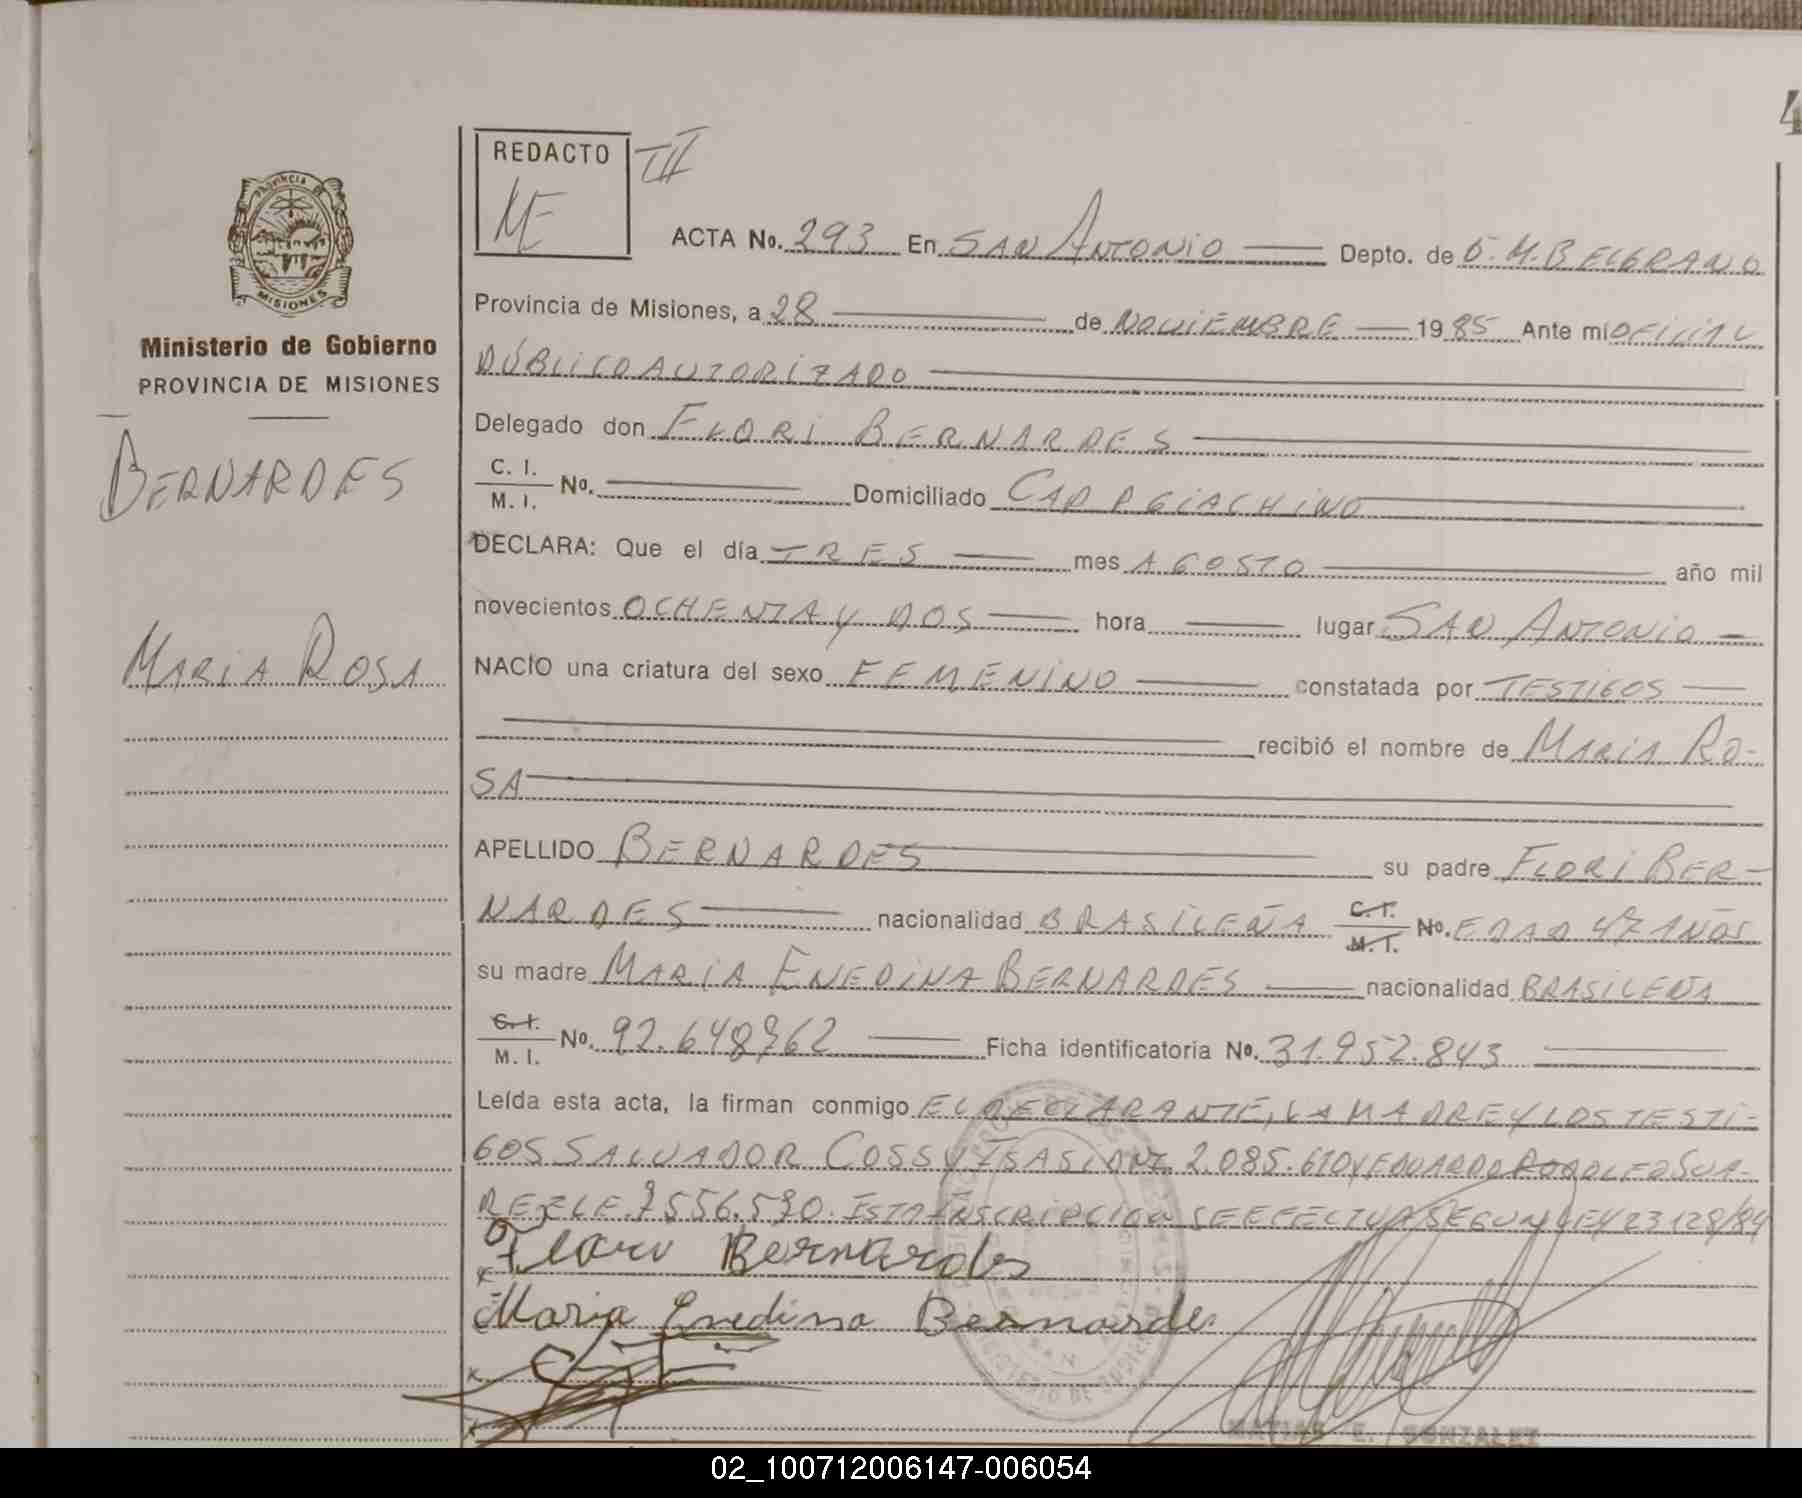 4
REDACTO
III
ME
PROVINCIA DE
MISIONES
Ministerio de Gobierno
PROVINCIA DE MISIONES
BERNARDES
MARIA ROSA
ACTA No. 293 En SAN ANTONIO Depto. de G. M. BELGRANO
Provincia de Misiones, a 28 de NOVIEMBRE 1985 Ante mi OFICIAL
PÚBLICO AUTORIZADO
Delegado don FLORI BERNARDES
C. I.
M. I. No. Domiciliado CAP P GIACHINO
DECLARA: Que el día TRES mes AGOSTO año mil
novecientos OCHENTA Y DOS hora lugar SAN ANTONIO
NACIO una criatura del sexo FEMENINO constatada por TESTIGOS
recibió el nombre de MARIA RO-
SA
APELLIDO BERNARDES su padre FLORI BER-
NARDES nacionalidad BRASILEÑA C. I. M. I. No. EDAD 47 AÑOS
su madre MARIA ENEDINA BERNARDES nacionalidad BRASILEÑA
C. I.
M. I. No. 92.648962 Ficha identificatoria No. 31.952.843
Leída esta acta, la firman conmigo EL DECLARANTE, LA MADRE Y LOS TESTI-
GOS SALVADOR COSSY 2.085.610 Y EDUARDO SUA-
REZ LE. 7556.590. ESTA INSCRIPCION SE EFECTUA SEGUN LEY 23128/84
Flori Bernardes
Maria Enedina Bernardes
MATIAS E. GONZALEZ
02_100712006147-006054